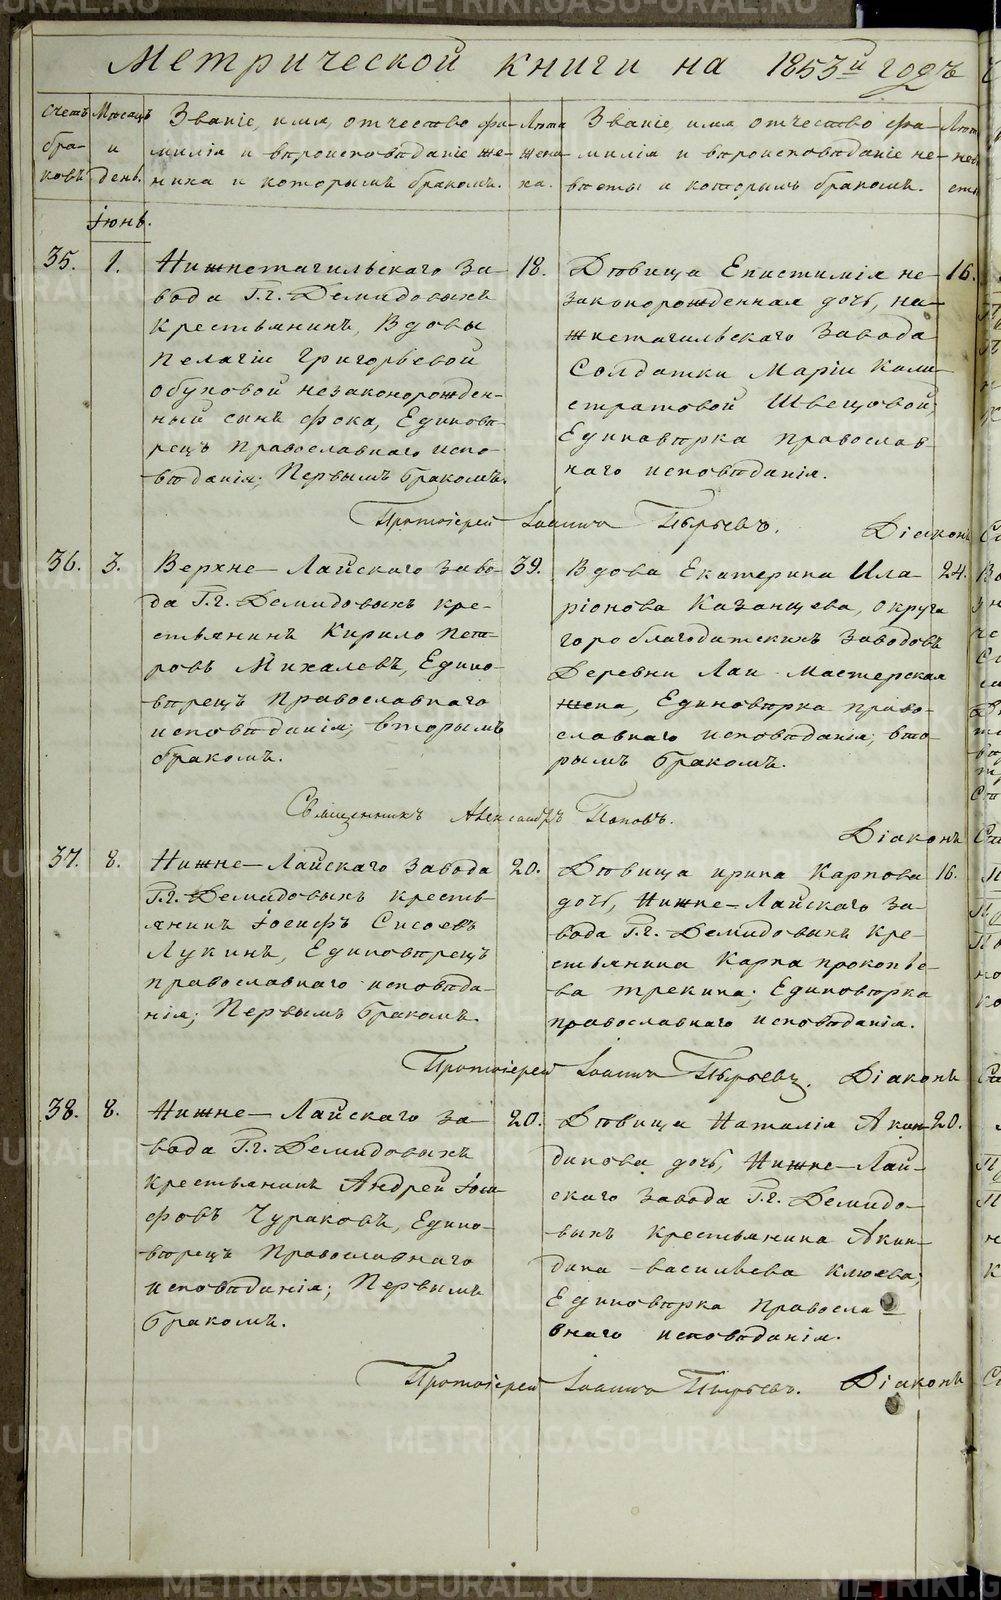 METRIKI.GASO-URAL.RU
Метрической книги на 1853й годъ
Счетъ браковъ
Мѣсяцъ и день.
Званіе, имя, отчество фамилія и вѣроисповѣданіе жениха и которымъ бракомъ.
Лѣта жениха.
Званіе, имя отчество фамилія и вѣроисповѣданіе невѣсты и которымъ бракомъ.
Іюнь.
35.
1.
Нижнетагильскаго За-
вода Г.г. Демидовыхъ
крестьянинъ, Вдовы
Пелагіи Григорьевой
Обуховой незаконорожден-
ный сынъ Фока, Единовѣ-
рецъ Православнаго испо-
вѣданія; Первымъ бракомъ.
18.
Дѣвица Епистимія не-
законорожденная дочь, ни-
жнетагильскаго Завода
Солдатки Маріи Кали-
стратовой Швецовой;
Единовѣрка православ
наго исповѣданія.
16.
Протоіерей Іоаннъ Пырьевъ.
Діаконъ
36.
3.
Верхне-Лайскаго Заво-
да Г.г. Демидовыхъ кре-
стьянинъ Кирило Пет-
ровъ Михалевъ, Едино-
вѣрецъ Православнаго
исповѣданія; вторымъ
бракомъ.
39.
Вдова Екатерина Ила-
ріонова Казанцева, округа
гороблагодатскихъ заводовъ
Деревни Лаи Мастерская
жена, Единовѣрка право-
славнаго исповѣданія; вто-
рымъ бракомъ.
24.
Священникъ Александръ Поповъ.
Діаконъ
37.
8.
Нижне-Лайскаго Завода
Г.г. Демидовыхъ кресть-
янинъ Іосифъ Сисоевъ
Лукинъ, Единовѣрецъ
православнаго исповѣда-
нія; Первымъ бракомъ.
20.
Дѣвица ирина Карпова
дочь, Нижне-Лайскаго За-
вода Г.г. Демидовыхъ кре-
стьянина Карпа прокопье-
ва трекина; Единовѣрка
православнаго исповѣданія.
16.
Протоіерей Іоаннъ Пырьевъ.
Діаконъ
38.
8.
Нижне-Лайскаго За-
вода Г.г. Демидовыхъ
крестьянинъ Андрей Іоси-
фовъ Чураковъ, Едино-
вѣрецъ Православнаго
исповѣданія; Первымъ
бракомъ.
20.
Дѣвица Наталія Акин-
динова дочь, Нижне-Лай-
скаго Завода Г.г. Демидо-
выхъ крестьянина Акин-
дина васильева Клюева;
Единовѣрка Правосла-
внаго исповѣданія.
20.
Протоіерей Іоаннъ Пырьевъ.
Діаконъ
METRIKI.GASO-URAL.RU